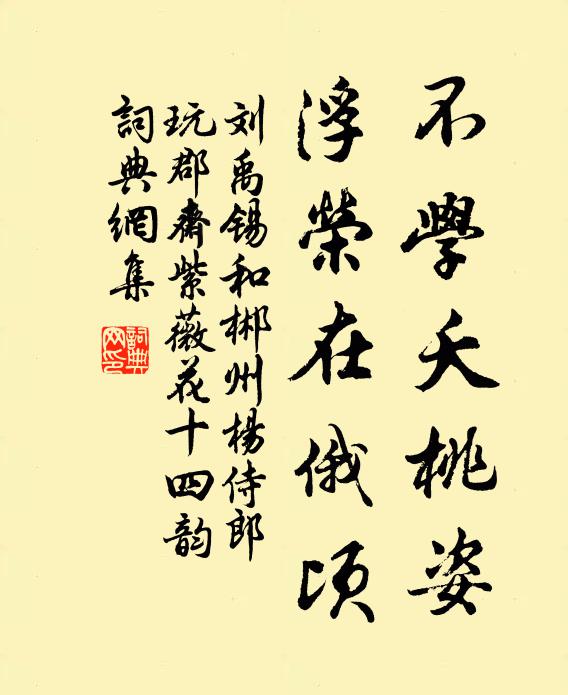 不學夭桃姿
浮榮在俄頃
刘禹錫和郴州楊侍郎
玩郡齋紫薇花十四韵
詞典網集
詞典网印